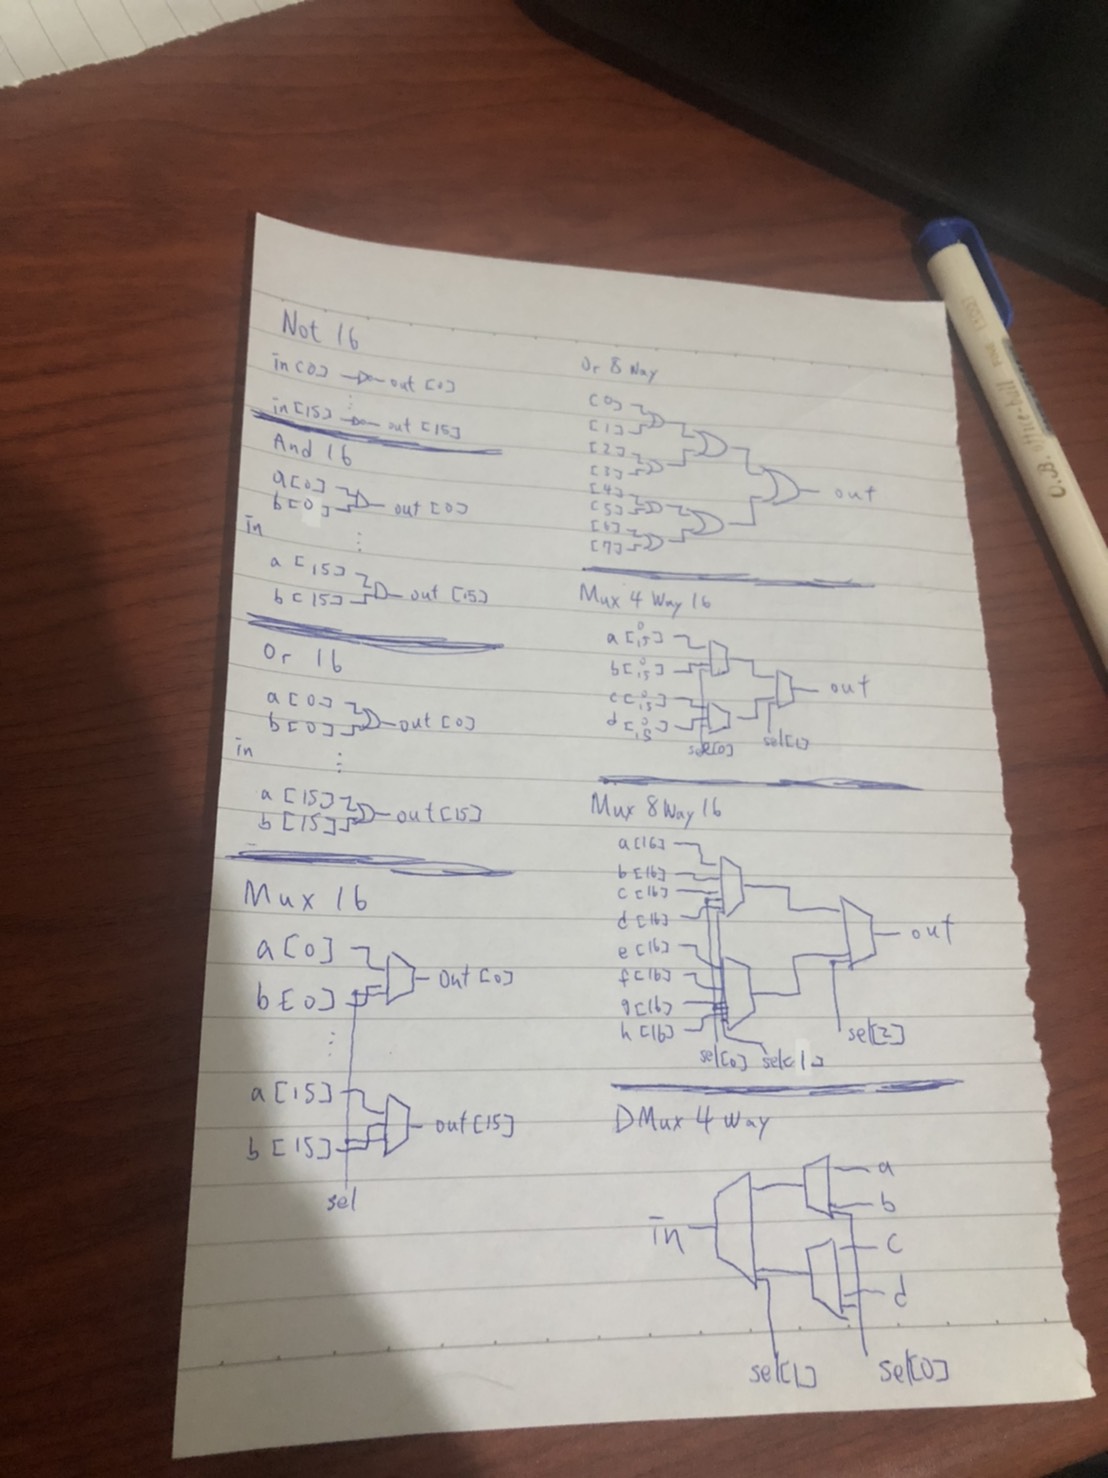 Not 16
in[0] out[0]
in[15] out[15]
And 16
a[0]
b[0] out[0]
in
a[15]
b[15] out[15]
Or 16
a[0]
b[0] out[0]
in
a[15]
b[15] out[15]
Mux 16
a[0]
b[0] out[0]
a[15]
b[15] out[15]
sel
Or 8 Way
[0]
[1]
[2]
[3]
[4]
[5]
[6]
[7]
out
Mux 4 Way 16
a[0..15]
b[0..15]
c[0..15]
d[0..15]
out
sel[0] sel[1]
Mux 8 Way 16
a[16]
b[16]
c[16]
d[16]
e[16]
f[16]
g[16]
h[16]
out
sel[0] sel[1] sel[2]
DMux 4 Way
in
a
b
c
d
sel[1] sel[0]
O.B.